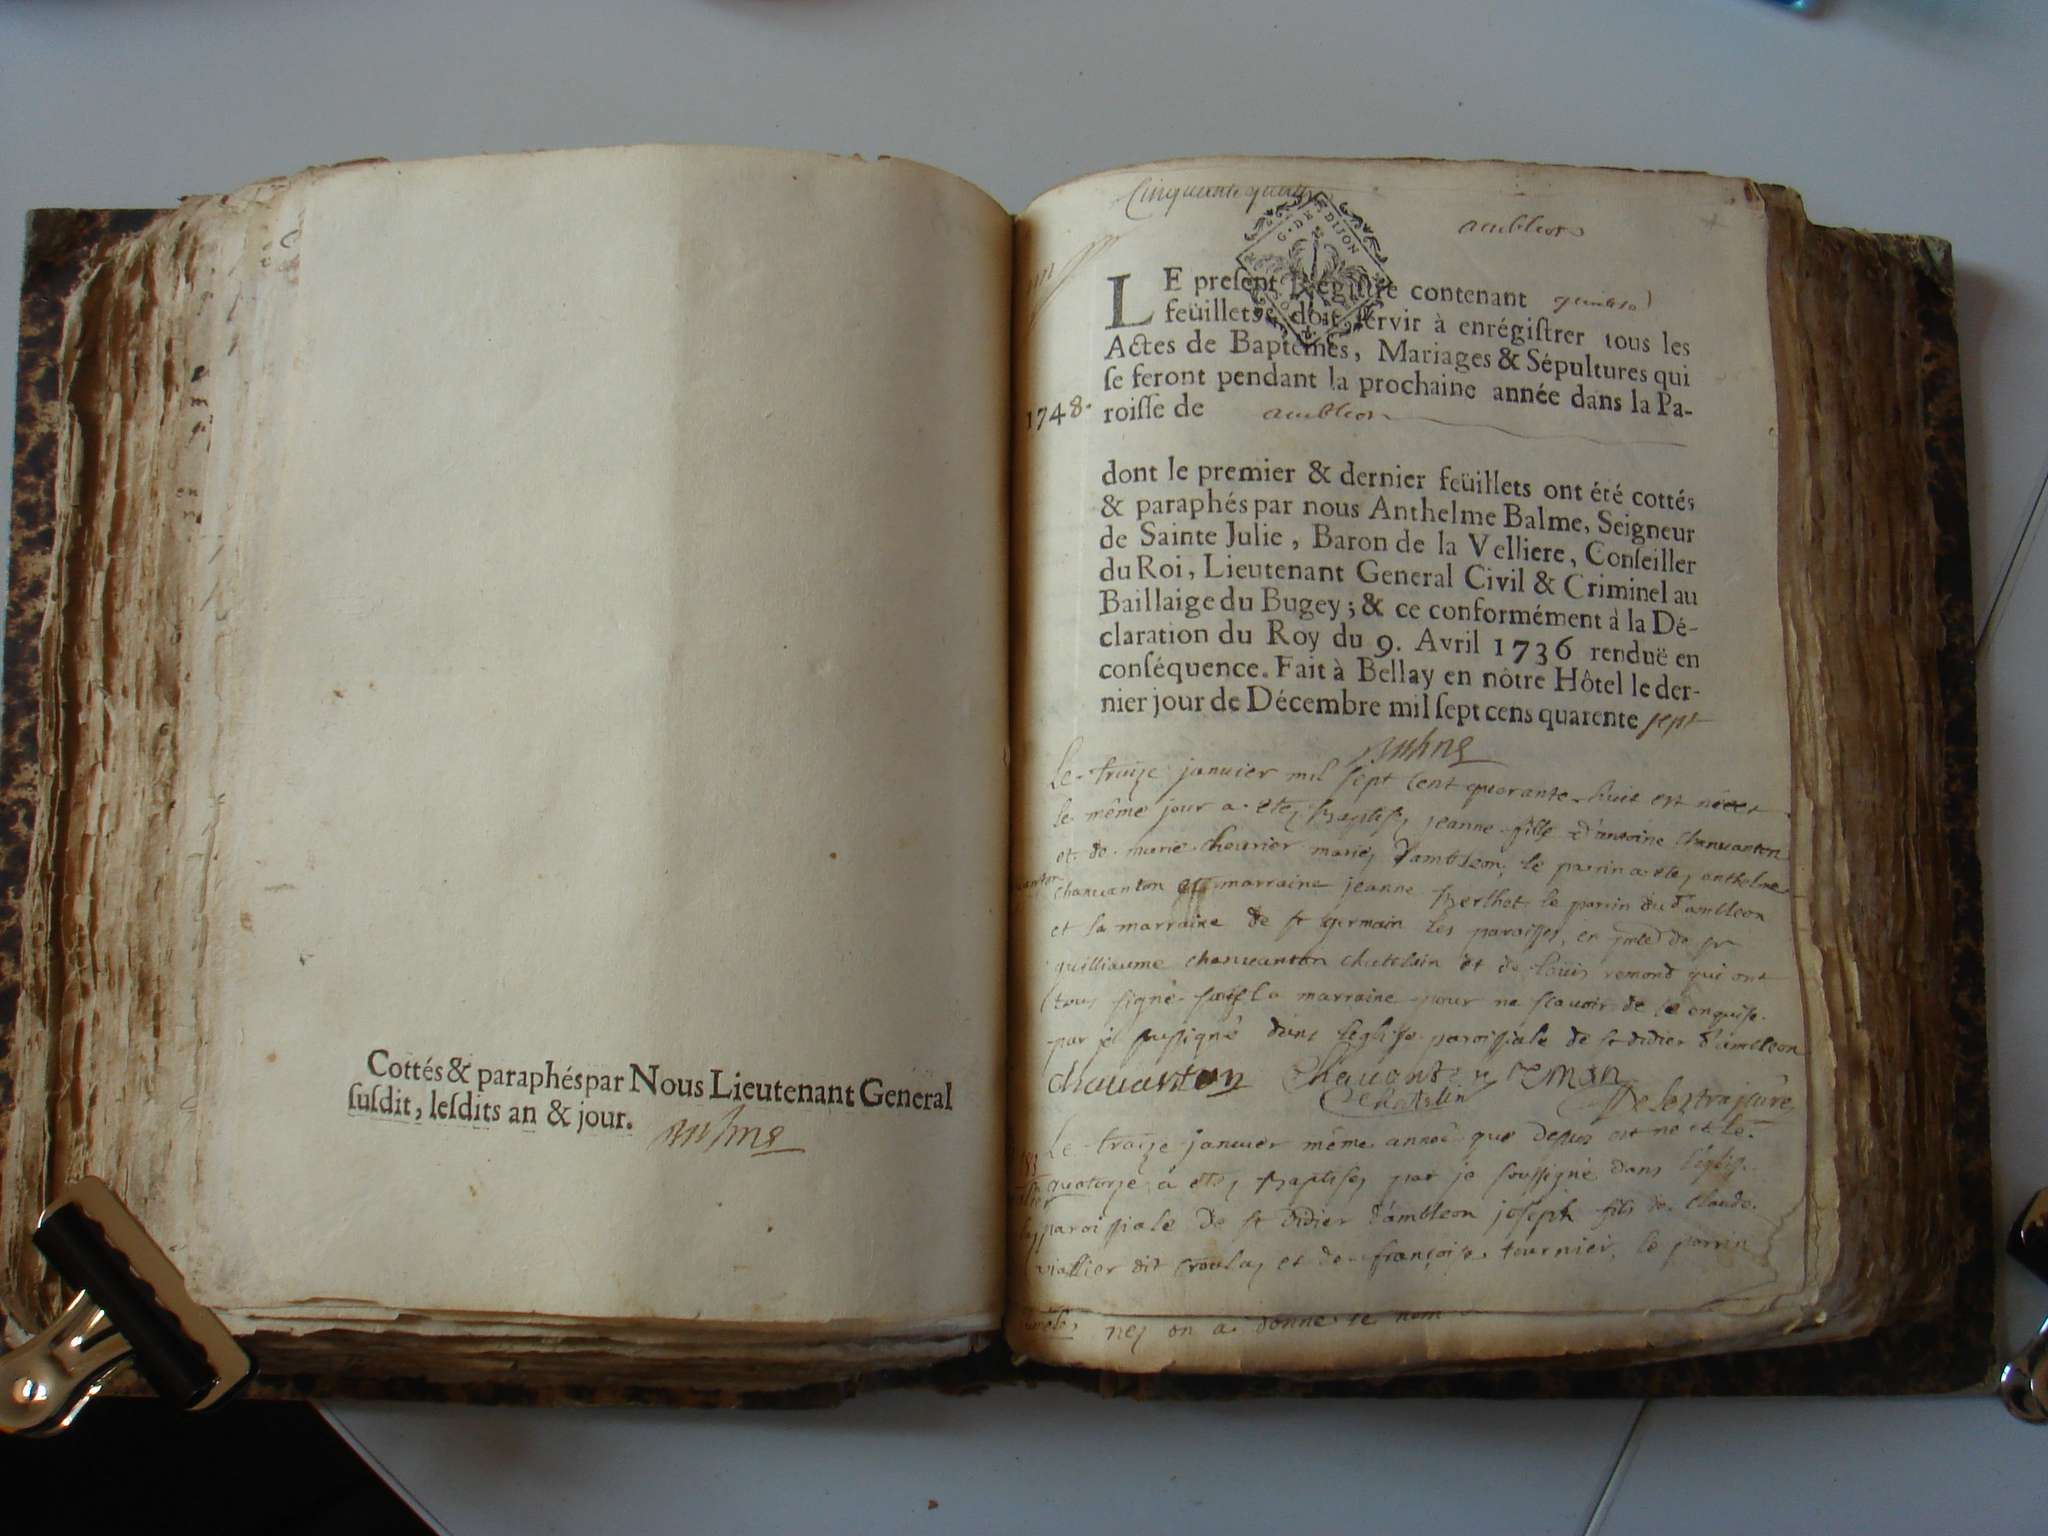 Cottés & paraphés par Nous Lieutenant General
susdit, lesdits an & jour.
Cinquante quatre
G. DE DIJON
ambleon
LE present Régistre contenant
feüillets, doit servir à enrégistrer tous les
Actes de Baptêmes, Mariages & Sépultures qui
se feront pendant la prochaine année dans la Pa-
1748.
roisse de ambleon
dont le premier & dernier feüillets ont été cottés
& paraphés par nous Anthelme Balme, Seigneur
de Sainte Julie, Baron de la Velliere, Conseiller
du Roi, Lieutenant General Civil & Criminel au
Baillaige du Bugey; & ce conformément à la Dé-
claration du Roy du 9. Avril 1736 renduë en
conséquence. Fait à Bellay en nôtre Hôtel le der-
nier jour de Décembre mil sept cens quarente sept
Balme
Le treize janvier mil sept cent quarante huit est née et
le même jour a etez Baptisez jeanne fille d'antoine chavanton
et de marie chevrier mariez d'ambleon, le parrin a etez anthelme
chavanton et marraine jeanne Berthet, le parrin du d'ambleon
et la marraine de st germain les paroisses, en de
guilliaume chavanton chatelain et de loüis remond qui ont
tous signé sauf la marraine pour ne scavoir de ce enquise.
par je soussigné dans l'eglise paroissiale de st didier d'ambleon
chavanton Chavanton
chatelain
Le treize janvier même année que dessus est ne et le
quatorze a etez Baptisez par je soussigné dans l'eglise
paroissiale de st didier d'ambleon joseph fils de claude
viallier dit et de françoise tournier, le parrin
nez on a donne le nom